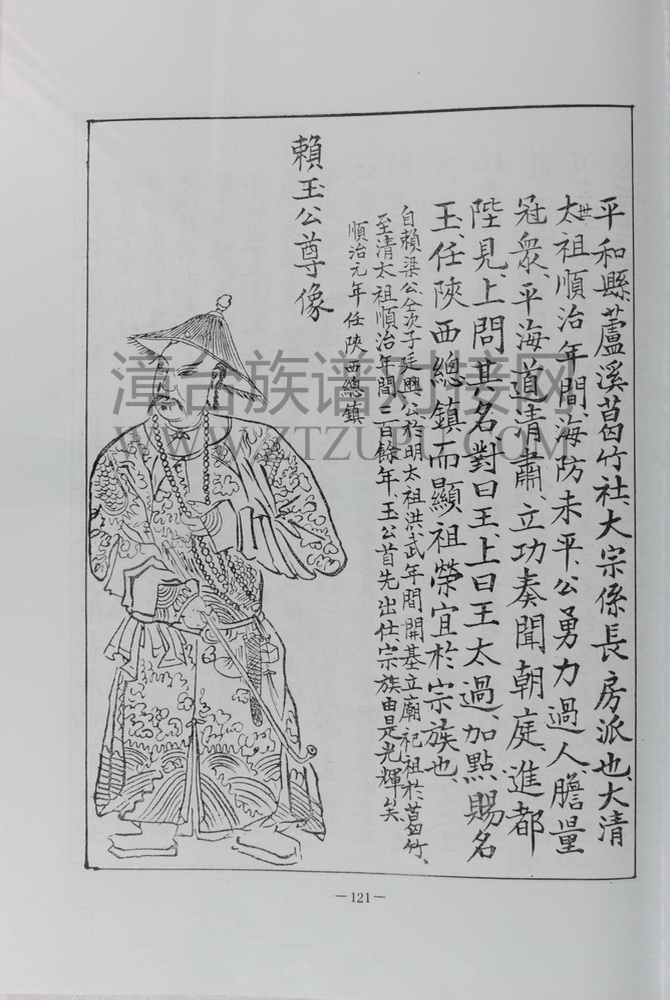 平和縣、蘆溪葛竹社、大宗係長房派也、大清
太世祖順治年間、海防未平、公勇力過人、膽量
冠眾、平海道清肅、立功奏聞朝庭、進都
陛見、上問其名、對曰王、上曰王太過、加點、賜名
玉、任陝西總鎮、而顯祖榮宜於宗族也、
自賴梁公、次子廷興公於明太祖洪武年間開基立廟祀祖於葛竹、
至清太祖順治年間二百餘年玉公首先出仕、宗族由是光輝矣
順治元年任陝西總鎮
賴玉公尊像
漳台族谱对接网
WWW.ZTZUPU.COM
—121—